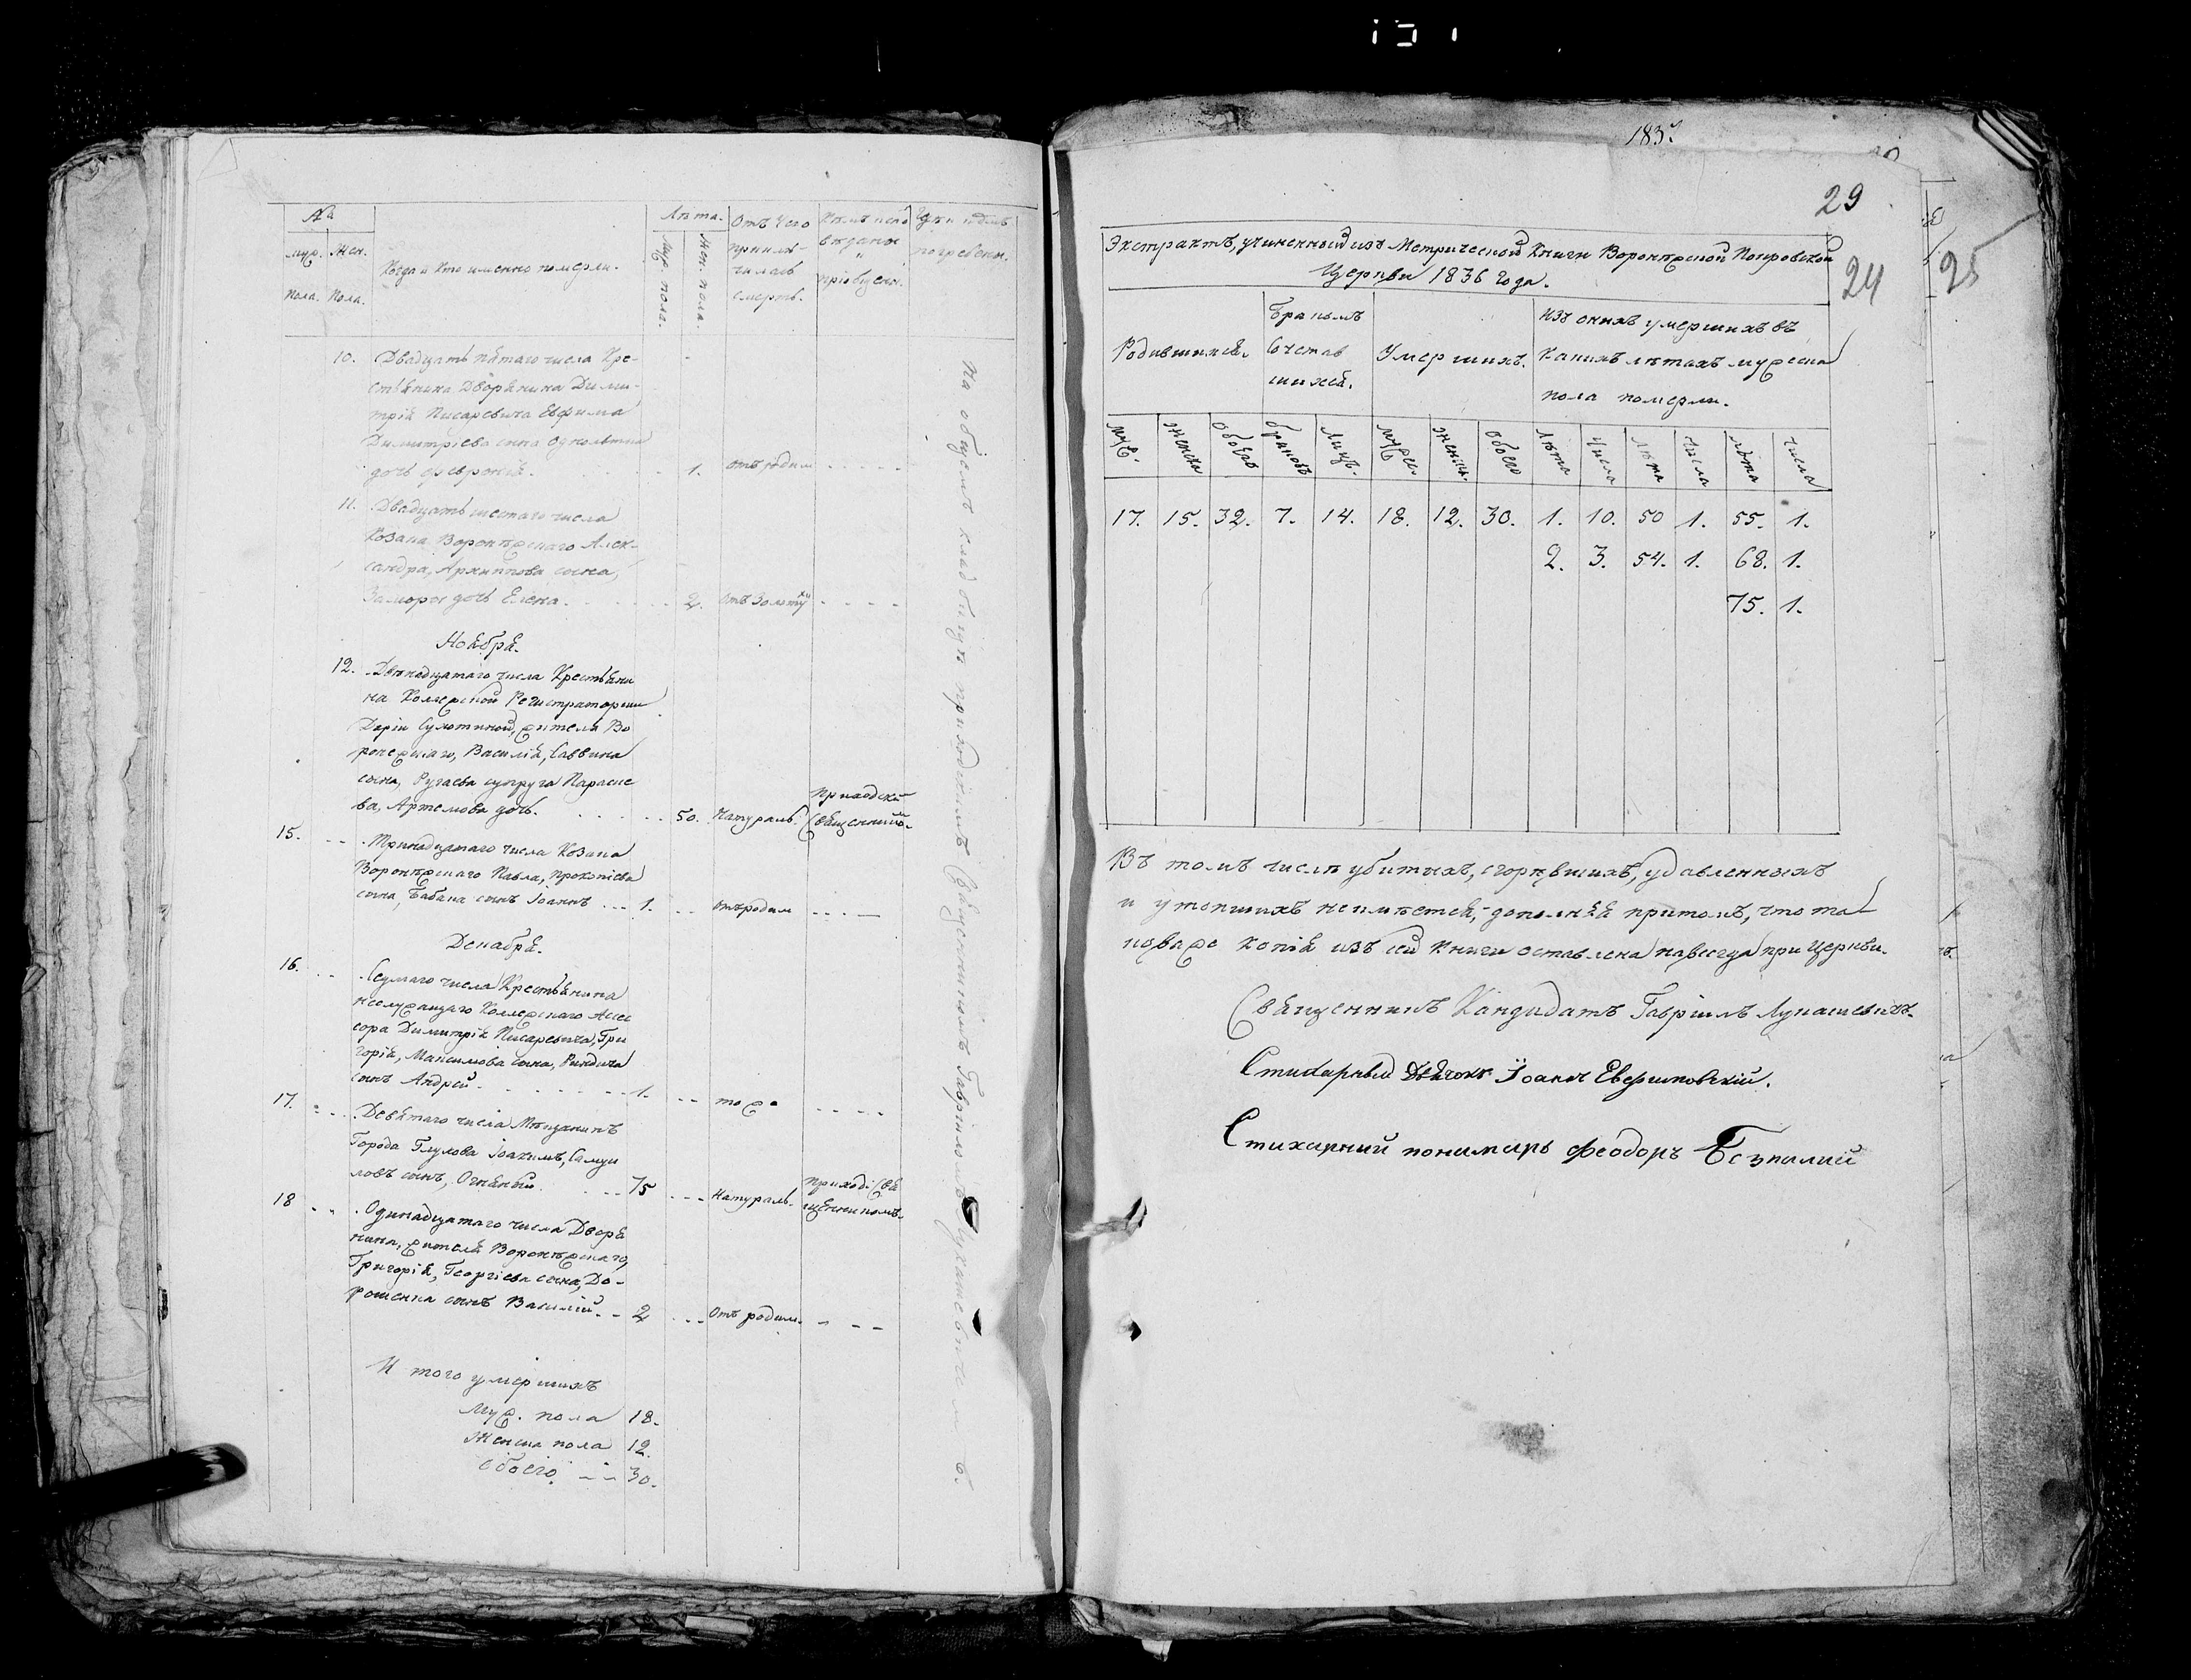 №
муж. Жен.
пола. Пола.
Когда и Кто именно померли.
Лѣта.
Муж. пола.
Жен. пола.
Отъ Чего
приклю-
чилась
смерть.
Кѣмъ испо
вѣданы
и
пріобщены.
Гдѣ и кѣмъ
погребены.
10. Двадцать пятаго числа Кре-
стьянина Дворянина Дими-
трія Писаревича Евфима
Димитріева сына Однолѣтна
дочь Февронія. 1. отъ родим
11. Двадцать шестаго числа
Козака Воронѣжскаго Алек-
сандра, Архиппова сына,
Заморы дочь Елена. 2. Отъ Золотухи
Ноября.
12. Двѣнодцатаго числа Крестьяни
на Коллежской Регистраторши
Даріи Сухотиной, жителя Во
ронежскаго, Василія, Саввина
сына, Ругаева супруга Параске
ва, Артемова дочь. 50. Натураль. Приходским Священником.
15. Тринадцатаго числа Козака
Воронѣжскаго Павла, Прокопіева
сына, Бабака сынъ Іоаннъ 1. отъ родим
Декабря.
16. Седмаго числа Крестьянина
неслужащаго Коллежскаго Ассес
сора Димитрія Писаревича, Гри
горія, Максимова сына, Риндича
сынъ Андрей. 1. то же
17. Девятаго числа Мѣщанинъ
Города Глухова Іоакимъ, Самуи
ловъ сынъ, Огняный. 75 Натураль. Приход: Свя
щенникомъ.
18 Одинадцатаго числа Дворя
нина, жителя Воронѣжскаго,
Григорія, Георгіева сына, До-
рошенка сынъ Василій. 2 Отъ родим.
И того умершихъ
Муж. пола 18.
Женска пола 12.
обоего 30.
На общемъ кладбищѣ приходскимъ Священникомъ Гавріиломъ Лукашевичемъ.
183
29
24
25
Экстрактъ, учиненный изъ Метрической Книги Воронѣжской Покровской
Церкви 1836 Года.
Родившихся.
Бракомъ
Сочетав
шихся.
Умершихъ.
Изъ оныхъ умершихъ въ
Какихъ лѣтахъ мужеска
пола померли.
муж. женска обоего браковъ Лицъ. мужес. женск. обоего Лѣта Числа Лѣта Числа Лѣта Числа
17. 15. 32. 7. 14. 18. 12. 30. 1. 10. 50 1. 55. 1.
2. 3. 54. 1. 68. 1.
75. 1.
Въ томъ числѣ убитыхъ, сгорѣвшихъ, удавленныхъ
и утопшихъ неимѣется, дополняя притомъ, что та
кова же копія изъ сей Книги оставлена навсегда при Церкви.
Священникъ Кандидатъ Гавріилъ Лукашевичъ.
Стихарный Дьячокъ Іоаннъ Евфимовскій.
Стихарний пономарь Феодоръ Безпалий